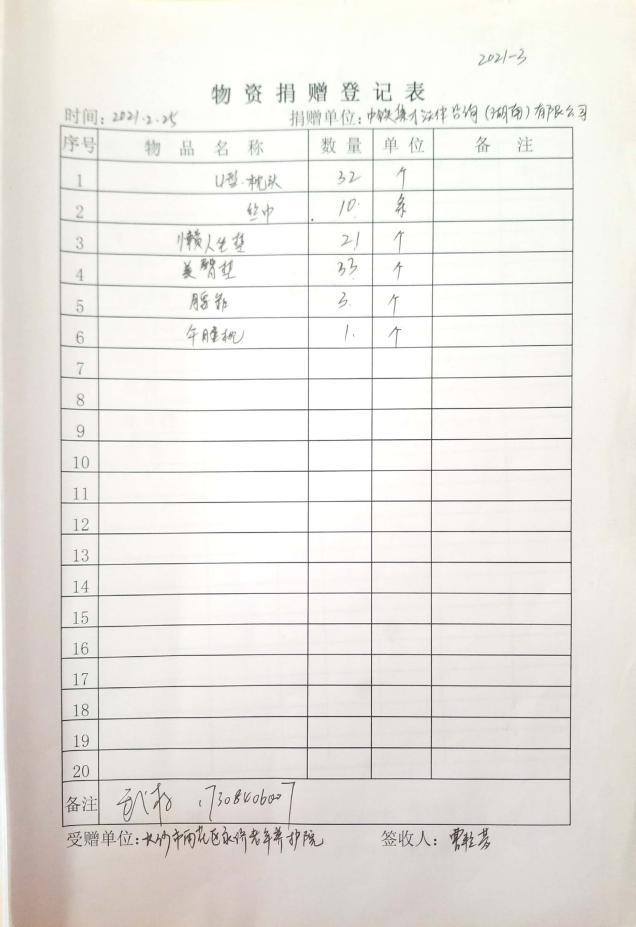 2021-3
物资捐赠登记表
时间：2021.2.25 捐赠单位：中 （湖南）有限公司
序号 物品名称 数量 单位 备注
1 U型枕头 32 个
2 丝巾 10 条
3 懒人坐垫 21 个
4 美臀垫 33 个
5 腰靠 3 个
6 午睡枕 1 个
7
8
9
10
11
12
13
14
15
16
17
18
19
20
备注
受赠单位：长沙市雨花区康侨老年养护院 签收人：曹